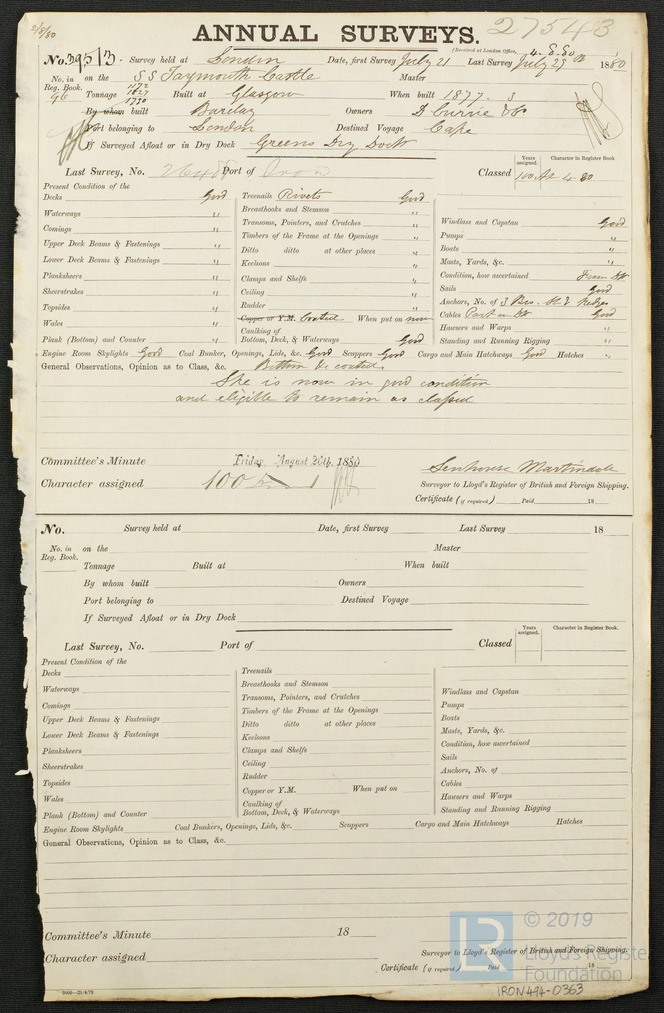 2/8/80
ANNUAL SURVEYS. 27543
(Received at London Office, 4.8.80
No. 39513. Survey held at London Date, first Survey July 21 Last Survey July 29th 1880
No. in Reg. Book. 96 on the SS Taymouth Castle Master
Tonnage 1172 1827 1770 Built at Glasgow When built 1877. 3
By whom built Barclay Owners D Currie & Co
Port belonging to London Destined Voyage Cape
If Surveyed Afloat or in Dry Dock Greens Dry Dock
Years assigned. Character in Register Book.
Last Survey, No. Port of Iron Classed 100 A 4.80
Present Condition of the
Decks Good Treenails Rivets Good
Waterways " Breasthooks and Stemson "
Comings " Transoms, Pointers, and Crutches " Windlass and Capstan Good
Upper Deck Beams & Fastenings " Timbers of the Frame at the Openings " Pumps "
Lower Deck Beams & Fastenings " Ditto ditto at other places " Boats "
Keelsons " Masts, Yards, &c. "
Planksheers " Clamps and Shelfs " Condition, how ascertained From Dk
Sheerstrakes " Ceiling " Sails Good
Topsides " Rudder " Anchors, No. of 3 Bro. St & Kedges
Wales " Copper or Y.M. Coated When put on now Cables Part on Dk Good
Plank (Bottom) and Counter " Caulking of Bottom, Deck, & Waterways Good Hawsers and Warps "
Standing and Running Rigging "
Engine Room Skylights Good Coal Bunker, Openings, Lids, &c. Good Scuppers Good Cargo and Main Hatchways Good Hatches "
General Observations, Opinion as to Class, &c. Bottom & coated.
She is now in good condition
and eligible to remain as classed
Committee's Minute Friday, August 20th. 1880
Character assigned 100 A 1
Senhouse Martindale
Surveyor to Lloyd's Register of British and Foreign Shipping.
Certificate (if required) Paid 18
No. Survey held at Date, first Survey Last Survey 18
No. in Reg. Book. on the Master
Tonnage Built at When built
By whom built Owners
Port belonging to Destined Voyage
If Surveyed Afloat or in Dry Dock
Years assigned. Character in Register Book.
Last Survey, No. Port of Classed
Present Condition of the
Decks Treenails
Waterways Breasthooks and Stemson
Comings Transoms, Pointers, and Crutches Windlass and Capstan
Upper Deck Beams & Fastenings Timbers of the Frame at the Openings Pumps
Lower Deck Beams & Fastenings Ditto ditto at other places Boats
Keelsons Masts, Yards, &c.
Planksheers Clamps and Shelfs Condition, how ascertained
Sheerstrakes Ceiling Sails
Topsides Rudder Anchors, No. of
Wales Copper or Y.M. When put on Cables
Plank (Bottom) and Counter Caulking of Bottom, Deck, & Waterways Hawsers and Warps
Standing and Running Rigging
Engine Room Skylights Coal Bunkers, Openings, Lids, &c. Scuppers Cargo and Main Hatchways Hatches
General Observations, Opinion as to Class, &c.
Committee's Minute 18
Character assigned
Surveyor to Lloyd's Register of British and Foreign Shipping.
Certificate (if required) Paid 18
LR © 2019
Lloyd's Register
Foundation
IRON494-0363